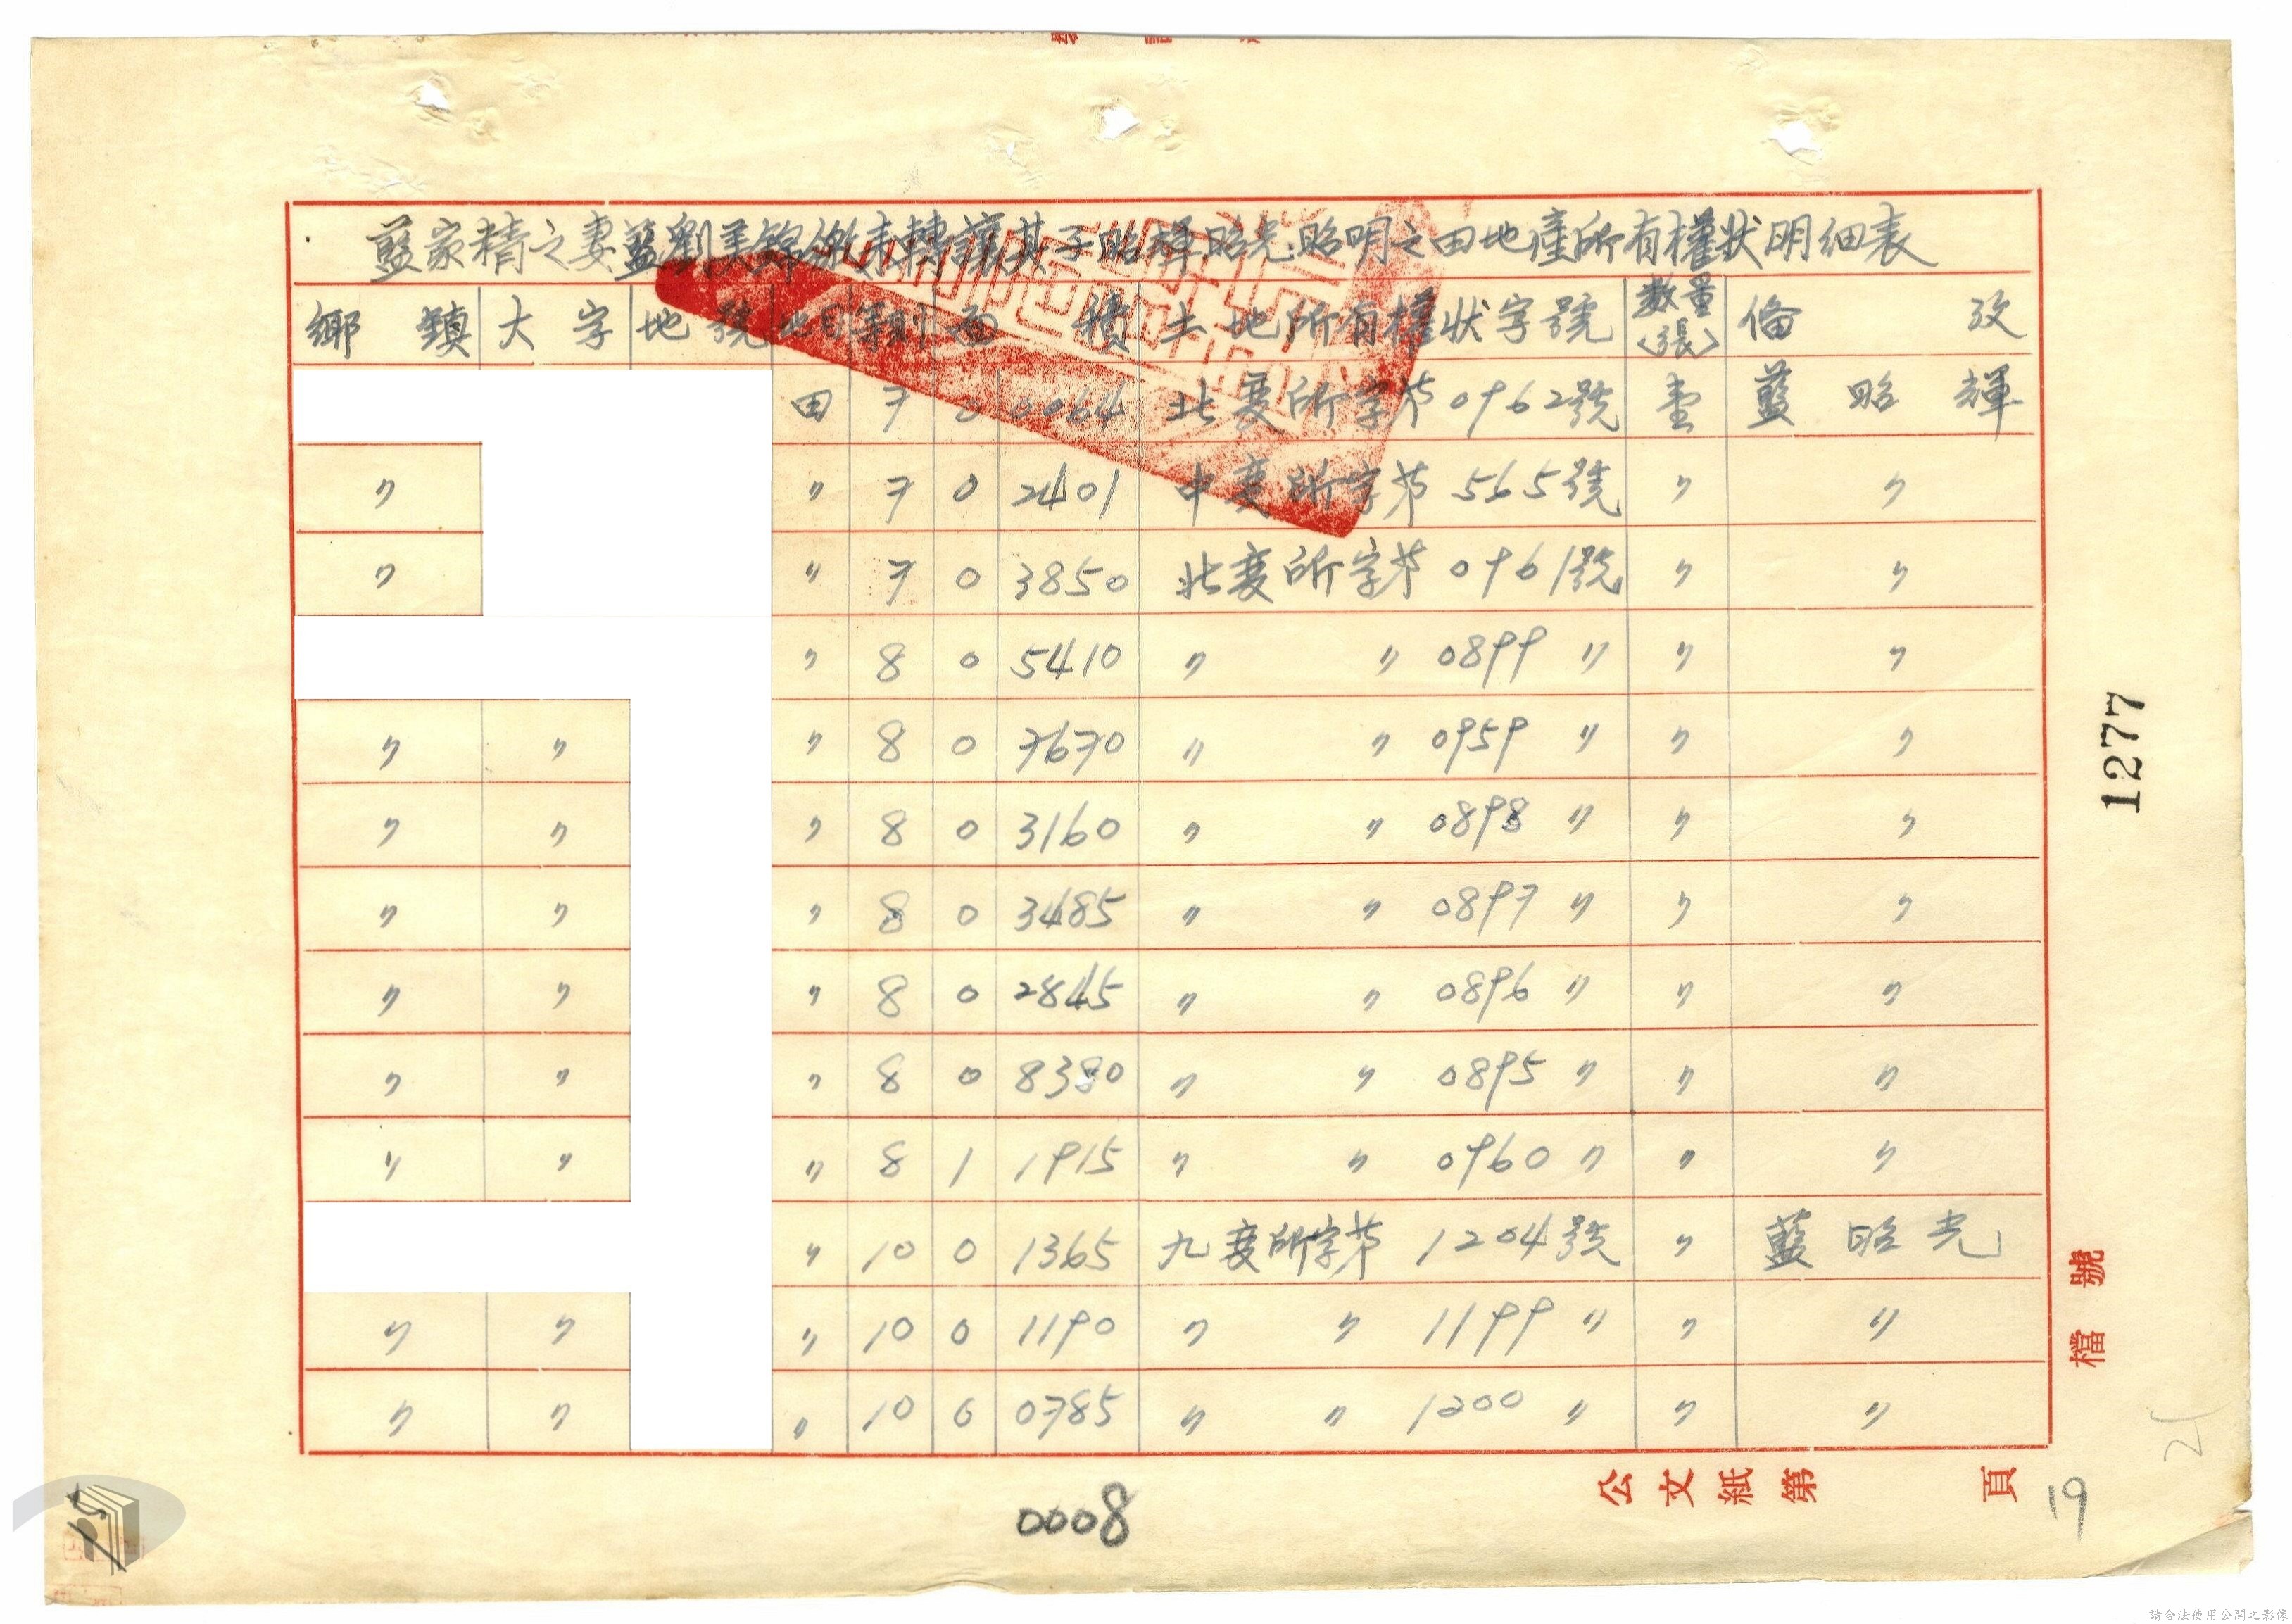 藍家精之妻藍劉美錦繳來轉讓其子昭輝昭光.昭明之田地產所有權狀明細表
鄉鎮 大字 地號 地目 等則 面積 土地所有權狀字號 數量(張) 備攷
田 7 0 0064 北變所字第0962號 壹 藍昭輝
〃 〃 7 0 2401 中變所字第565號 〃 〃
〃 〃 7 0 3850 北變所字第0961號 〃 〃
〃 8 0 5410 〃 〃 0899 〃 〃 〃
〃 〃 〃 8 0 7670 〃 〃 0959 〃 〃 〃
〃 〃 〃 8 0 3160 〃 〃 0898 〃 〃 〃
〃 〃 〃 8 0 3485 〃 〃 0897 〃 〃 〃
〃 〃 〃 8 0 2845 〃 〃 0896 〃 〃 〃
〃 〃 〃 8 0 8380 〃 〃 0895 〃 〃 〃
〃 〃 〃 8 1 1915 〃 〃 0960 〃 〃 〃
〃 10 0 1365 九變所字第1204號 〃 藍昭光
〃 〃 〃 10 0 1190 〃 〃 1199 〃 〃 〃
〃 〃 〃 10 0 0785 〃 〃 1200 〃 〃 〃
1277
檔號
公文紙第 頁
19
0008
請合法使用公開之影像